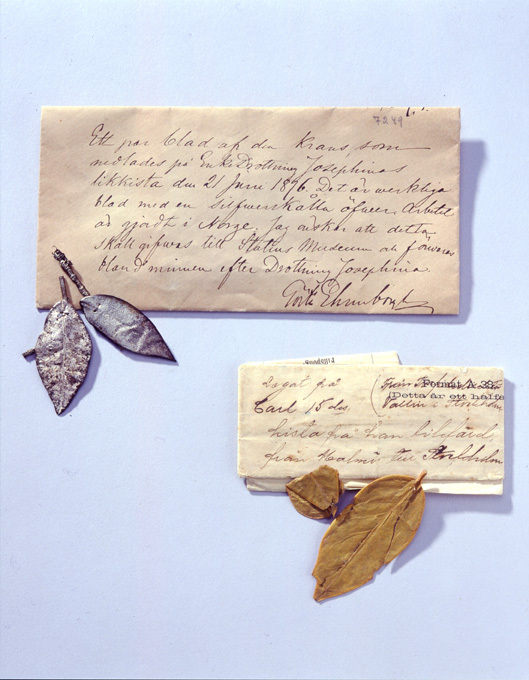 7249
Ett par blad af den Krans, som
nedlades på EnkeDrottning Josephinas
likkista den 21 Juni 1876. Det är werkliga
blad med en silfwerskålla öfwer, Arbetet
är gjordt i Norge. Jag önskar att detta
skall gifwas till Statens Museum och förwaras
bland minnen efter Drottning Josephina.
Legat på
Carl 15des
kista på hans likfärd
från Malmö till Stockholm
Format A 38.
(Detta är ett halft